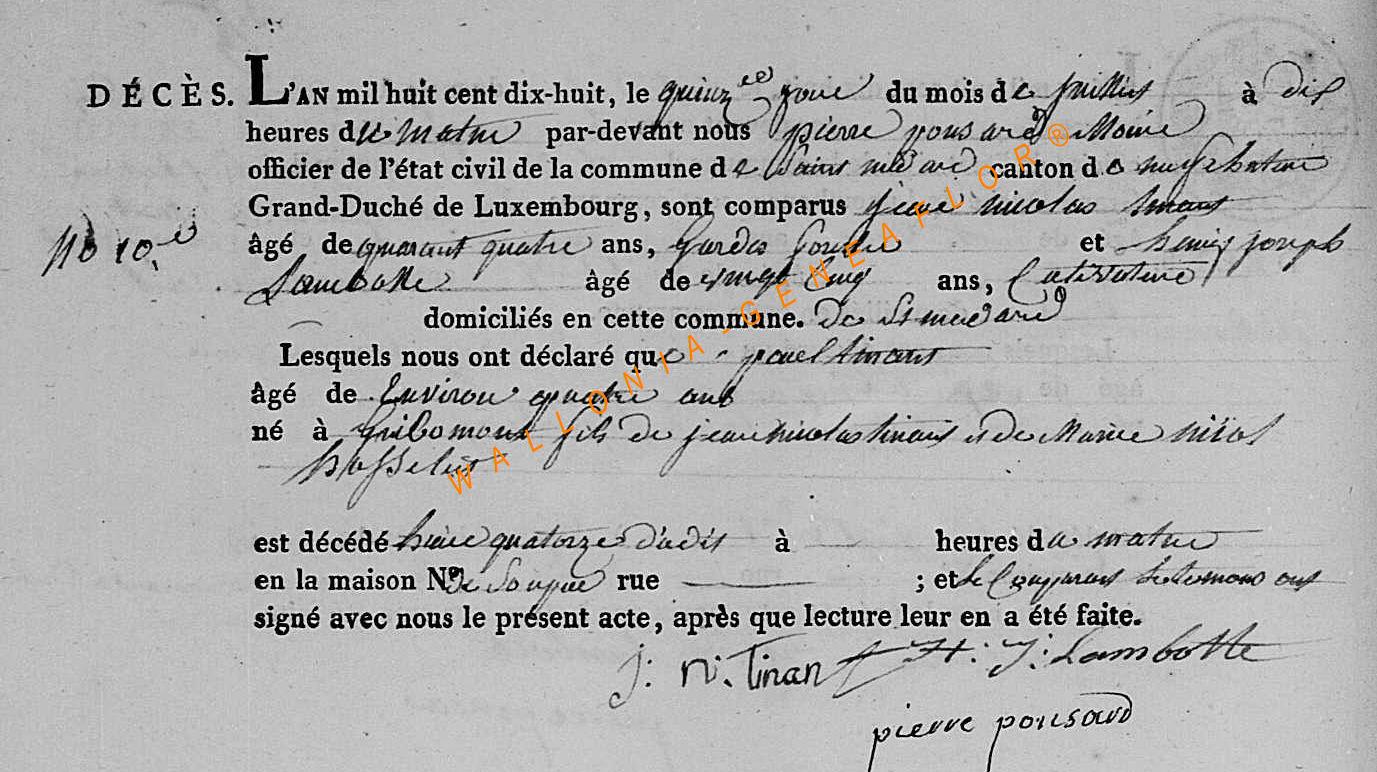 DÉCÈS. L'AN mil huit cent dix-huit, le quinzee jour du mois de juillit à dix
heures du matin par-devant nous pierre ponsard Maire
officier de l'état civil de la commune de Saint médard canton de neufchateau
Grand-Duché de Luxembourg, sont comparus jean nicolas tinant
No 10. âgé de quarant quatre ans, Gardes et henry joseph
Lambotte âgé de vingt cinq ans,
domiciliés en cette commune. De St medard
Lesquels nous ont déclaré que paul tinant
âgé de Environ quatre ans
né à Gribomont fils de jean nicolas tinant et de Marie
hosselet
est décédé hiere quatorze dudit à heures du matin
en la maison No. rue ; et le Comparant ont
signé avec nous le présent acte, après que lecture leur en a été faite.
J: N. Tinant H: J: Lambotte
pierre ponsard
WALLONIA-GENEAFLOR®